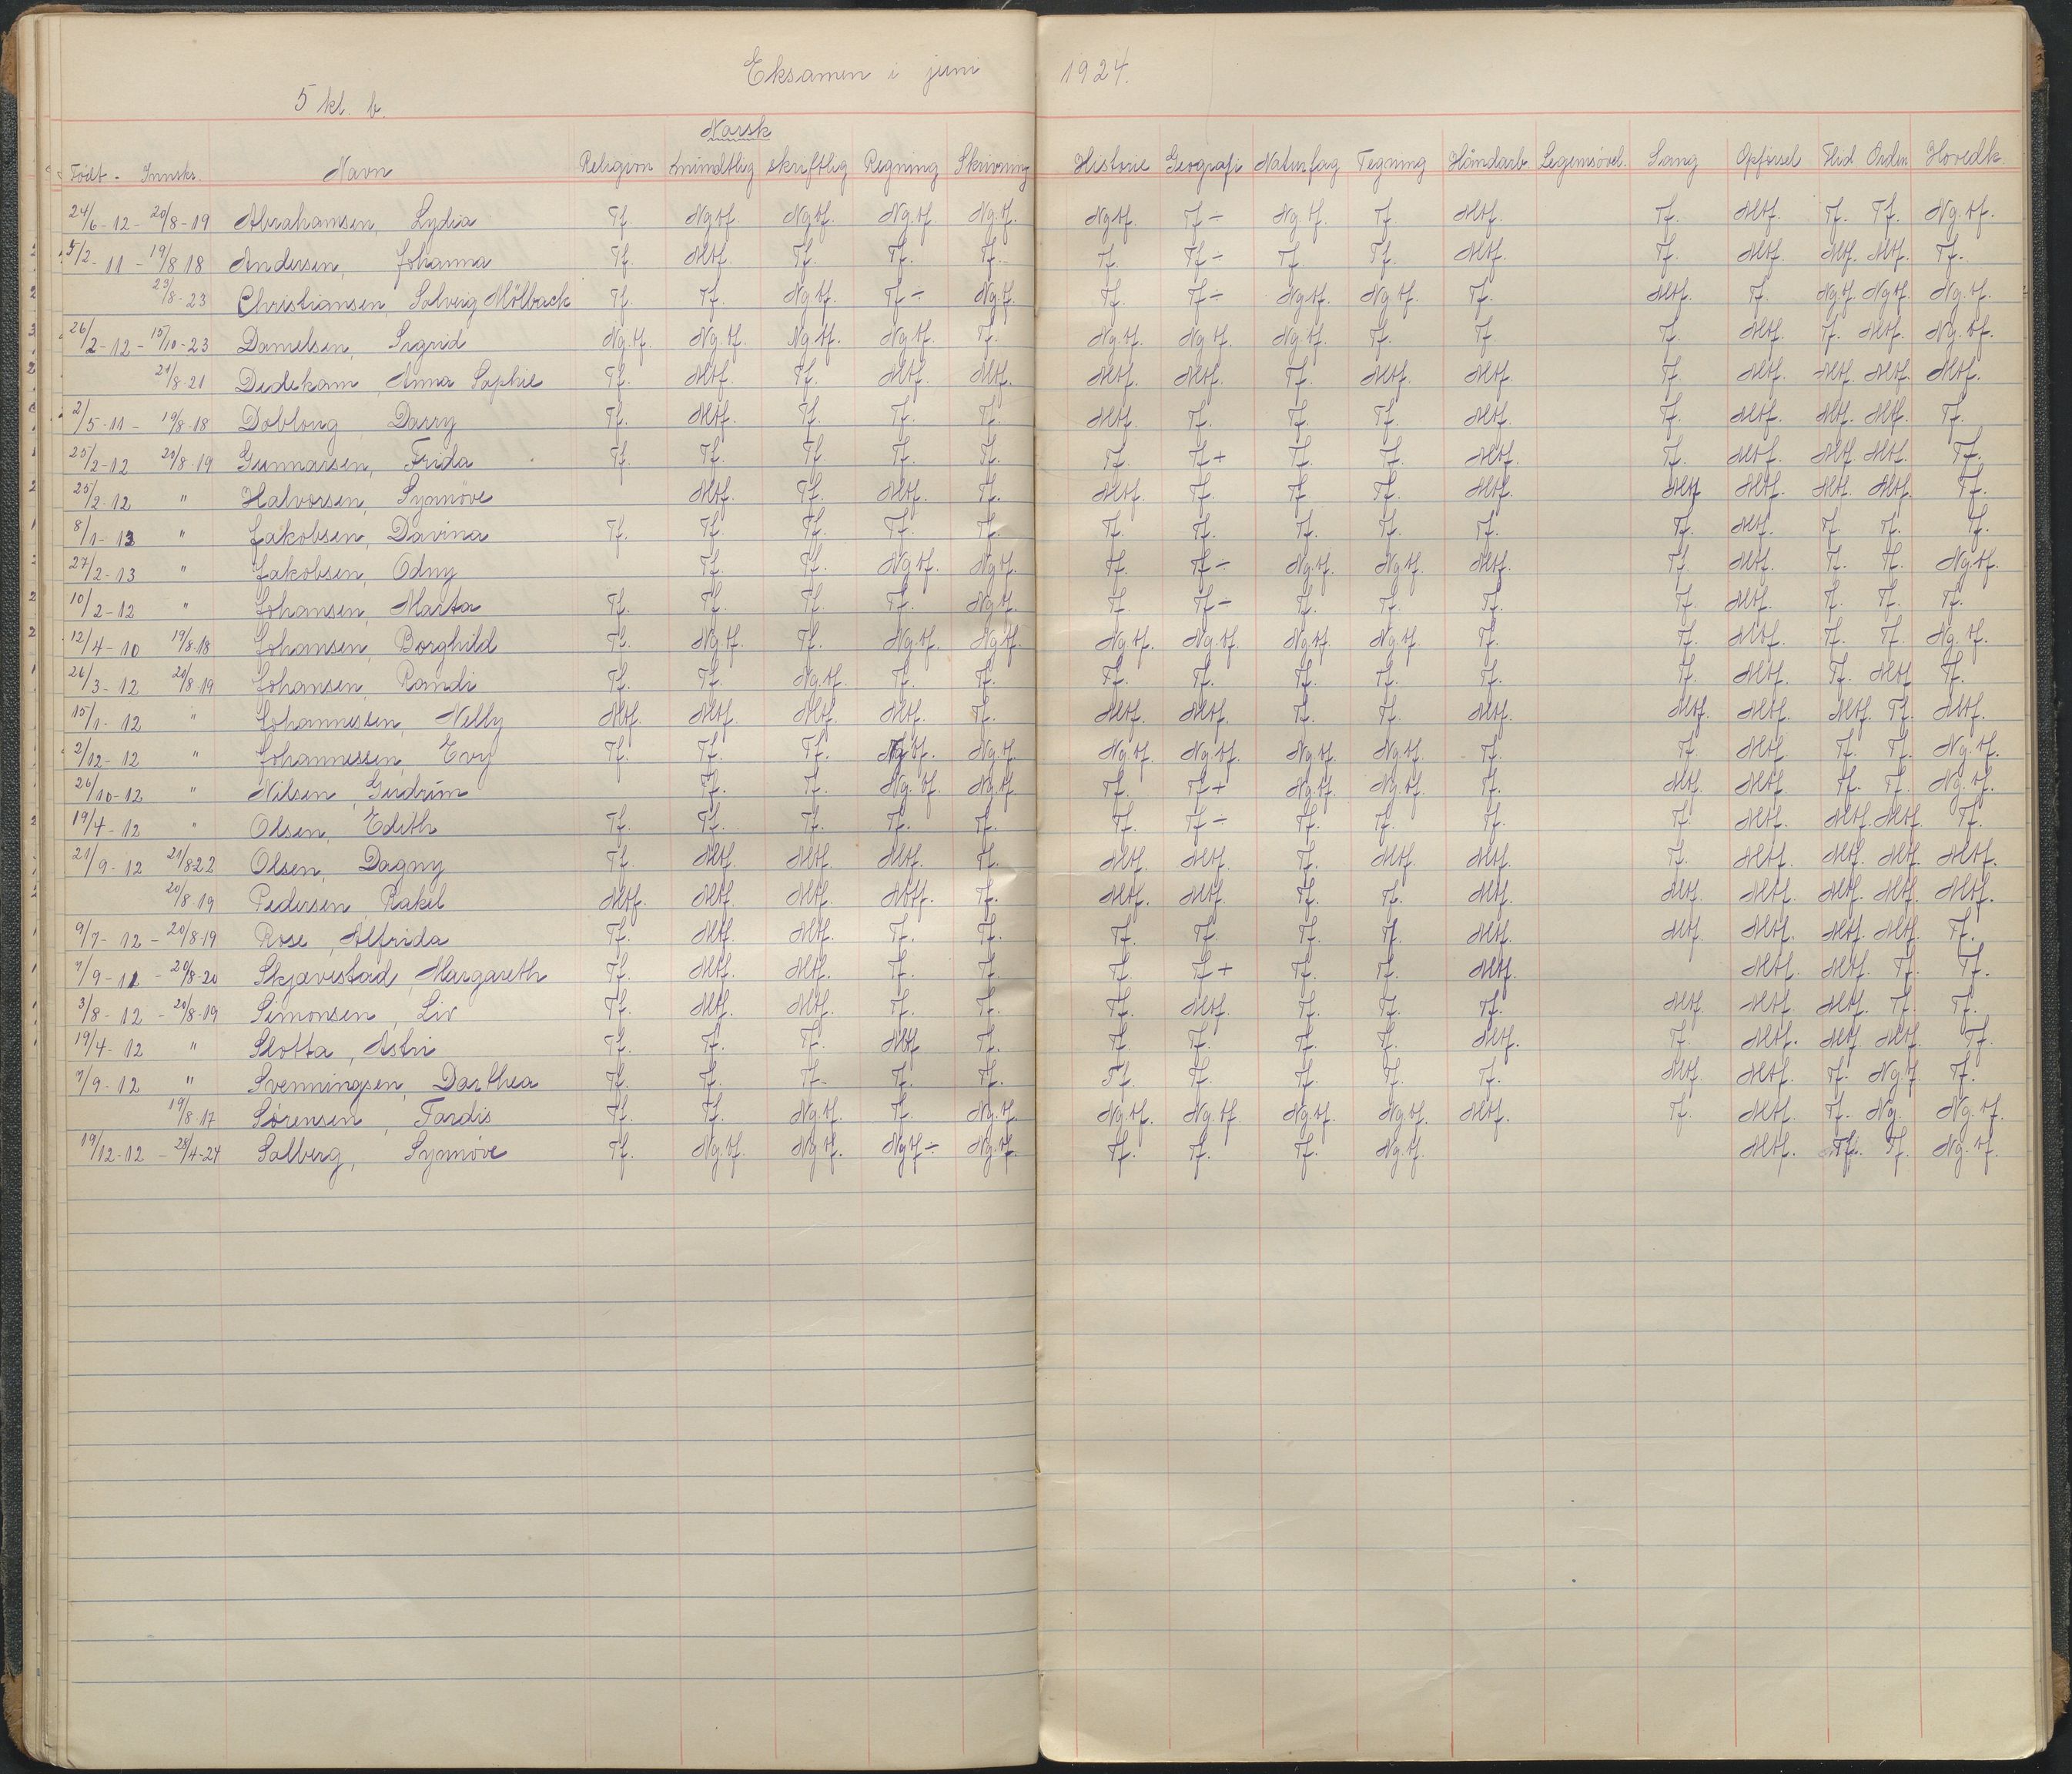 Eksamen i juni 1924.
5 kl. b.
Norsk
Født - Innskr. Navn Religion mundtlig skriftlig Regning Skrivning Historie Geografi Naturfag Tegning Håndarb. Legemsøvel. Sang Opførsel Flid Orden Hovedk.
24/6-12 - 20/8-19 Abrahamsen, Lydia Tf. Ng.tf. Ng.tf. Ng.tf. Ng.tf. Ng.tf. Tf- Ng.tf. Tf. Mtf. Tf. Mtf. Tf. Tf. Ng.tf.
5/2-11 - 19/8 18 Andersen, Johanna Tf. Mtf. Tf. Tf. Tf. Tf. Tf÷ Tf. Tf. Mtf. Tf. Mtf. Mtf. Mtf. Tf.
23/8-23 Christiansen, Solveig Mölback Tf. Tf. Ng.tf. Tf÷ Ng.tf. Tf. Tf÷ Ng.tf. Ng.tf. Tf. Mtf. Tf. Ng.tf. Ng.tf. Ng.tf.
26/2-12 - 15/10-23 Danielsen, Sigrid Ng.tf. Ng.tf. Ng.tf. Ng.tf. Tf. Ng.tf. Ng.tf. Ng.tf. Tf. Tf. Tf. Mtf. Tf. Mtf. Ng.tf.
21/8-21 Dedekam, Anna Sophie Tf. Mtf. Tf. Mtf. Mtf. Mtf. Mtf. Tf. Mtf. Mtf. Tf. Mtf. Mtf. Mtf. Mtf.
2/5-11 - 19/8-18 Doblong Darry Tf. Mtf. Tf. Tf. Tf. Mtf. Tf. Tf. Tf. Mtf. Tf. Mtf. Mtf. Mtf. Tf.
25/2-12 20/8-19 Gunnarsen, Frida Tf. Tf. Tf. Tf. Tf. Tf. Tf+ Tf. Tf. Mtf. Tf. Mtf. Mtf. Mtf. Tf.
25/2-12 " Halvorsen, Synnöve Mtf. Tf. Mtf. Tf. Mtf. Tf. Tf. Tf. Mtf. Mtf Mtf. Mtf. Mtf. Tf.
8/1-13 " Jakobsen, Davina Tf. Tf. Tf. Tf. Tf. Tf. Tf. Tf. Tf. Tf. Tf. Mtf. Tf. Tf. Tf.
27/2-13 " Jakobsen, Odny Tf. Tf. Ng.tf. Ng.tf. Tf. Tf- Ng.tf. Ng.tf. Mtf. Tf. Mtf. Tf. Tf. Ng.tf.
10/2-12 " Johansen, Marta Tf. Tf. Tf. Tf. Ng.tf. Tf. Tf- Tf. Tf. Tf. Tf. Mtf. Tf. Tf. Tf.
12/4-10 19/8-18 Johansen, Borghild Tf. Ng.tf. Tf. Ng.tf. Ng.tf. Ng.tf. Ng.tf. Ng.tf. Ng.tf. Tf. Tf. Mtf. Tf. Tf. Ng.tf.
26/3-12 20/8-19 Johansen, Randi Tf. Tf. Ng.tf. Tf. Tf. Tf. Tf. Tf. Tf. Tf. Tf. Mtf. Tf. Mtf Tf.
15/1-12 " Johannessen, Nelly Mtf. Mtf. Mtf. Mtf. Tf. Mtf. Mtf. Tf. Tf. Mtf. Mtf. Mtf. Mtf. Tf. Mtf.
2/12-12 " Johannessen, Evy Tf. Tf. Tf. Ng.tf. Ng.tf. Ng.tf. Ng.tf. Ng.tf. Ng.tf. Tf. Tf. Mtf. Tf. Tf. Ng.tf.
26/10-12 " Nilsen, Gudrun Tf. Tf. Ng.tf. Ng.tf. Tf. Tf+ Ng.tf. Ng.tf. Tf. Mtf. Mtf. Tf. Tf. Ng.tf.
19/4-12 " Olsen, Edith Tf. Tf. Tf. Tf. Tf. Tf. Tf÷ Tf. Tf. Tf. Tf Mtf. Mtf. Mtf. Tf.
21/9-12 21/8-22 Olsen, Dagny Tf. Mtf. Mtf. Mtf. Tf. Mtf. Mtf. Tf. Mtf. Mtf. Tf. Mtf. Mtf. Mtf. Mtf.
20/8 19 Pedersen, Rakel Mtf. Mtf. Mtf. Mtf. Tf. Mtf. Mtf. Tf. Tf. Mtf. Mtf. Mtf. Mtf. Mtf. Mtf.
9/7-12 - 20/8-19 Rose, Alfrida Tf. Mtf. Mtf. Tf. Tf. Tf. Tf. Tf. Tf. Mtf. Mtf. Mtf. Mtf. Mtf. Tf.
7/9-11 - 20/8-20 Skjævestad, Margareth Tf. Mtf. Mtf. Tf. Tf. Tf. Tf+ Tf. Tf. Mtf. Mtf. Mtf. Tf. Tf.
3/8-12 - 20/8-19 Simonsen, Liv Tf. Mtf. Mtf. Tf. Tf. Tf. Mtf. Tf. Tf. Tf. Mtf. Mtf. Mtf. Tf. Tf.
19/4-12 " Slotta, Astri Tf. Tf. Tf. Mtf Tf. Tf. Tf. Tf. Tf. Mtf. Tf. Mtf. Mtf Mtf. Tf.
7/9-12 " Svenningsen, Dorthea Tf. Tf. Tf. Tf. Tf. Tf. Tf. Tf. Tf. Tf. Mtf. Mtf. Tf. Ng.tf. Tf.
19/8-17 Sørensen, Tordis Tf. Tf. Ng.tf. Tf. Ng.tf. Ng.tf. Ng.tf. Ng.tf. Ng.tf. Mtf. Tf. Mtf. Tf. Ng. Ng.tf.
19/12-12 - 28/4-24 Solberg, Synnøve Tf. Ng.tf. Ng.tf. Ng.tf÷ Ng.tf. Tf. Tf. Tf. Ng.tf. Mtf. Tf. Tf. Ng.tf.